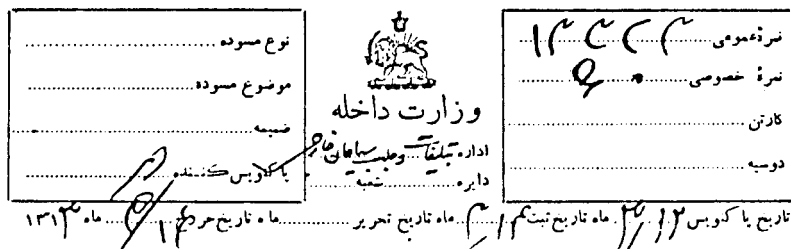 نمرهٔ عمومی
نمرهٔ خصوصی
کارتن
دوسیه
وزارت داخله
اداره تبلیغات و جلب سیاحان خارجه
دایره شعبه
نوع مسوده
موضوع مسوده
ضمیمه
پاکنویس کننده
تاریخ پاکنویس ماه تاریخ ثبت ماه تاریخ تحریر ماه تاریخ خروج ماه ۱۳۱۴